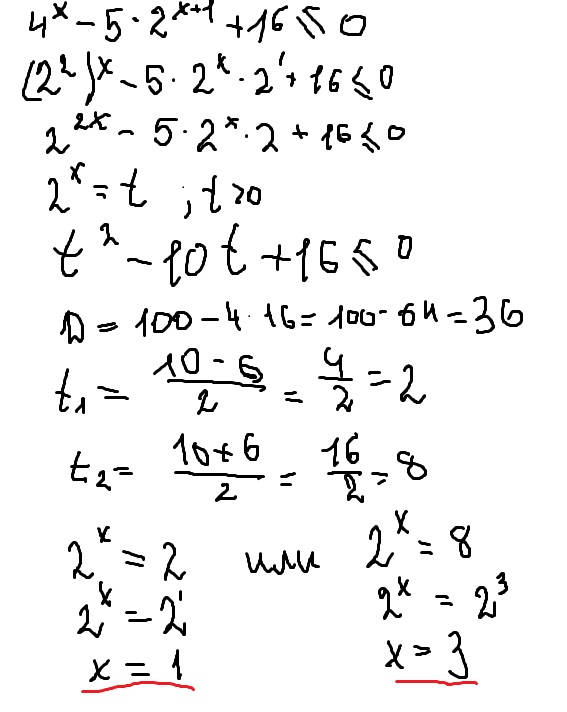 4^x − 5 · 2^{x+1} + 16 ⩽ 0
(2^2)^x − 5 · 2^x · 2^1 + 16 ⩽ 0
2^{2x} − 5 · 2^x · 2 + 16 ⩽ 0
2^x = t ; t > 0
t^2 − 10t + 16 ⩽ 0
D = 100 − 4 · 16 = 100 − 64 = 36
t_1 = (10 − 6)/2 = 4/2 = 2
t_2 = (10 + 6)/2 = 16/2 = 8
2^x = 2 или 2^x = 8
2^x = 2^1 2^x = 2^3
x = 1 x = 3